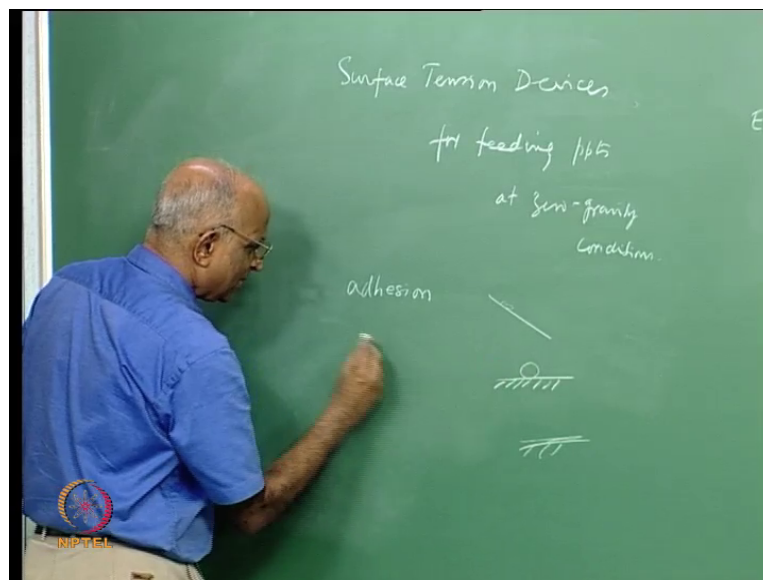 Surface Tension Devices
for feeding ppts
at zero-gravity
conditions.
E
adhesion
NPTEL